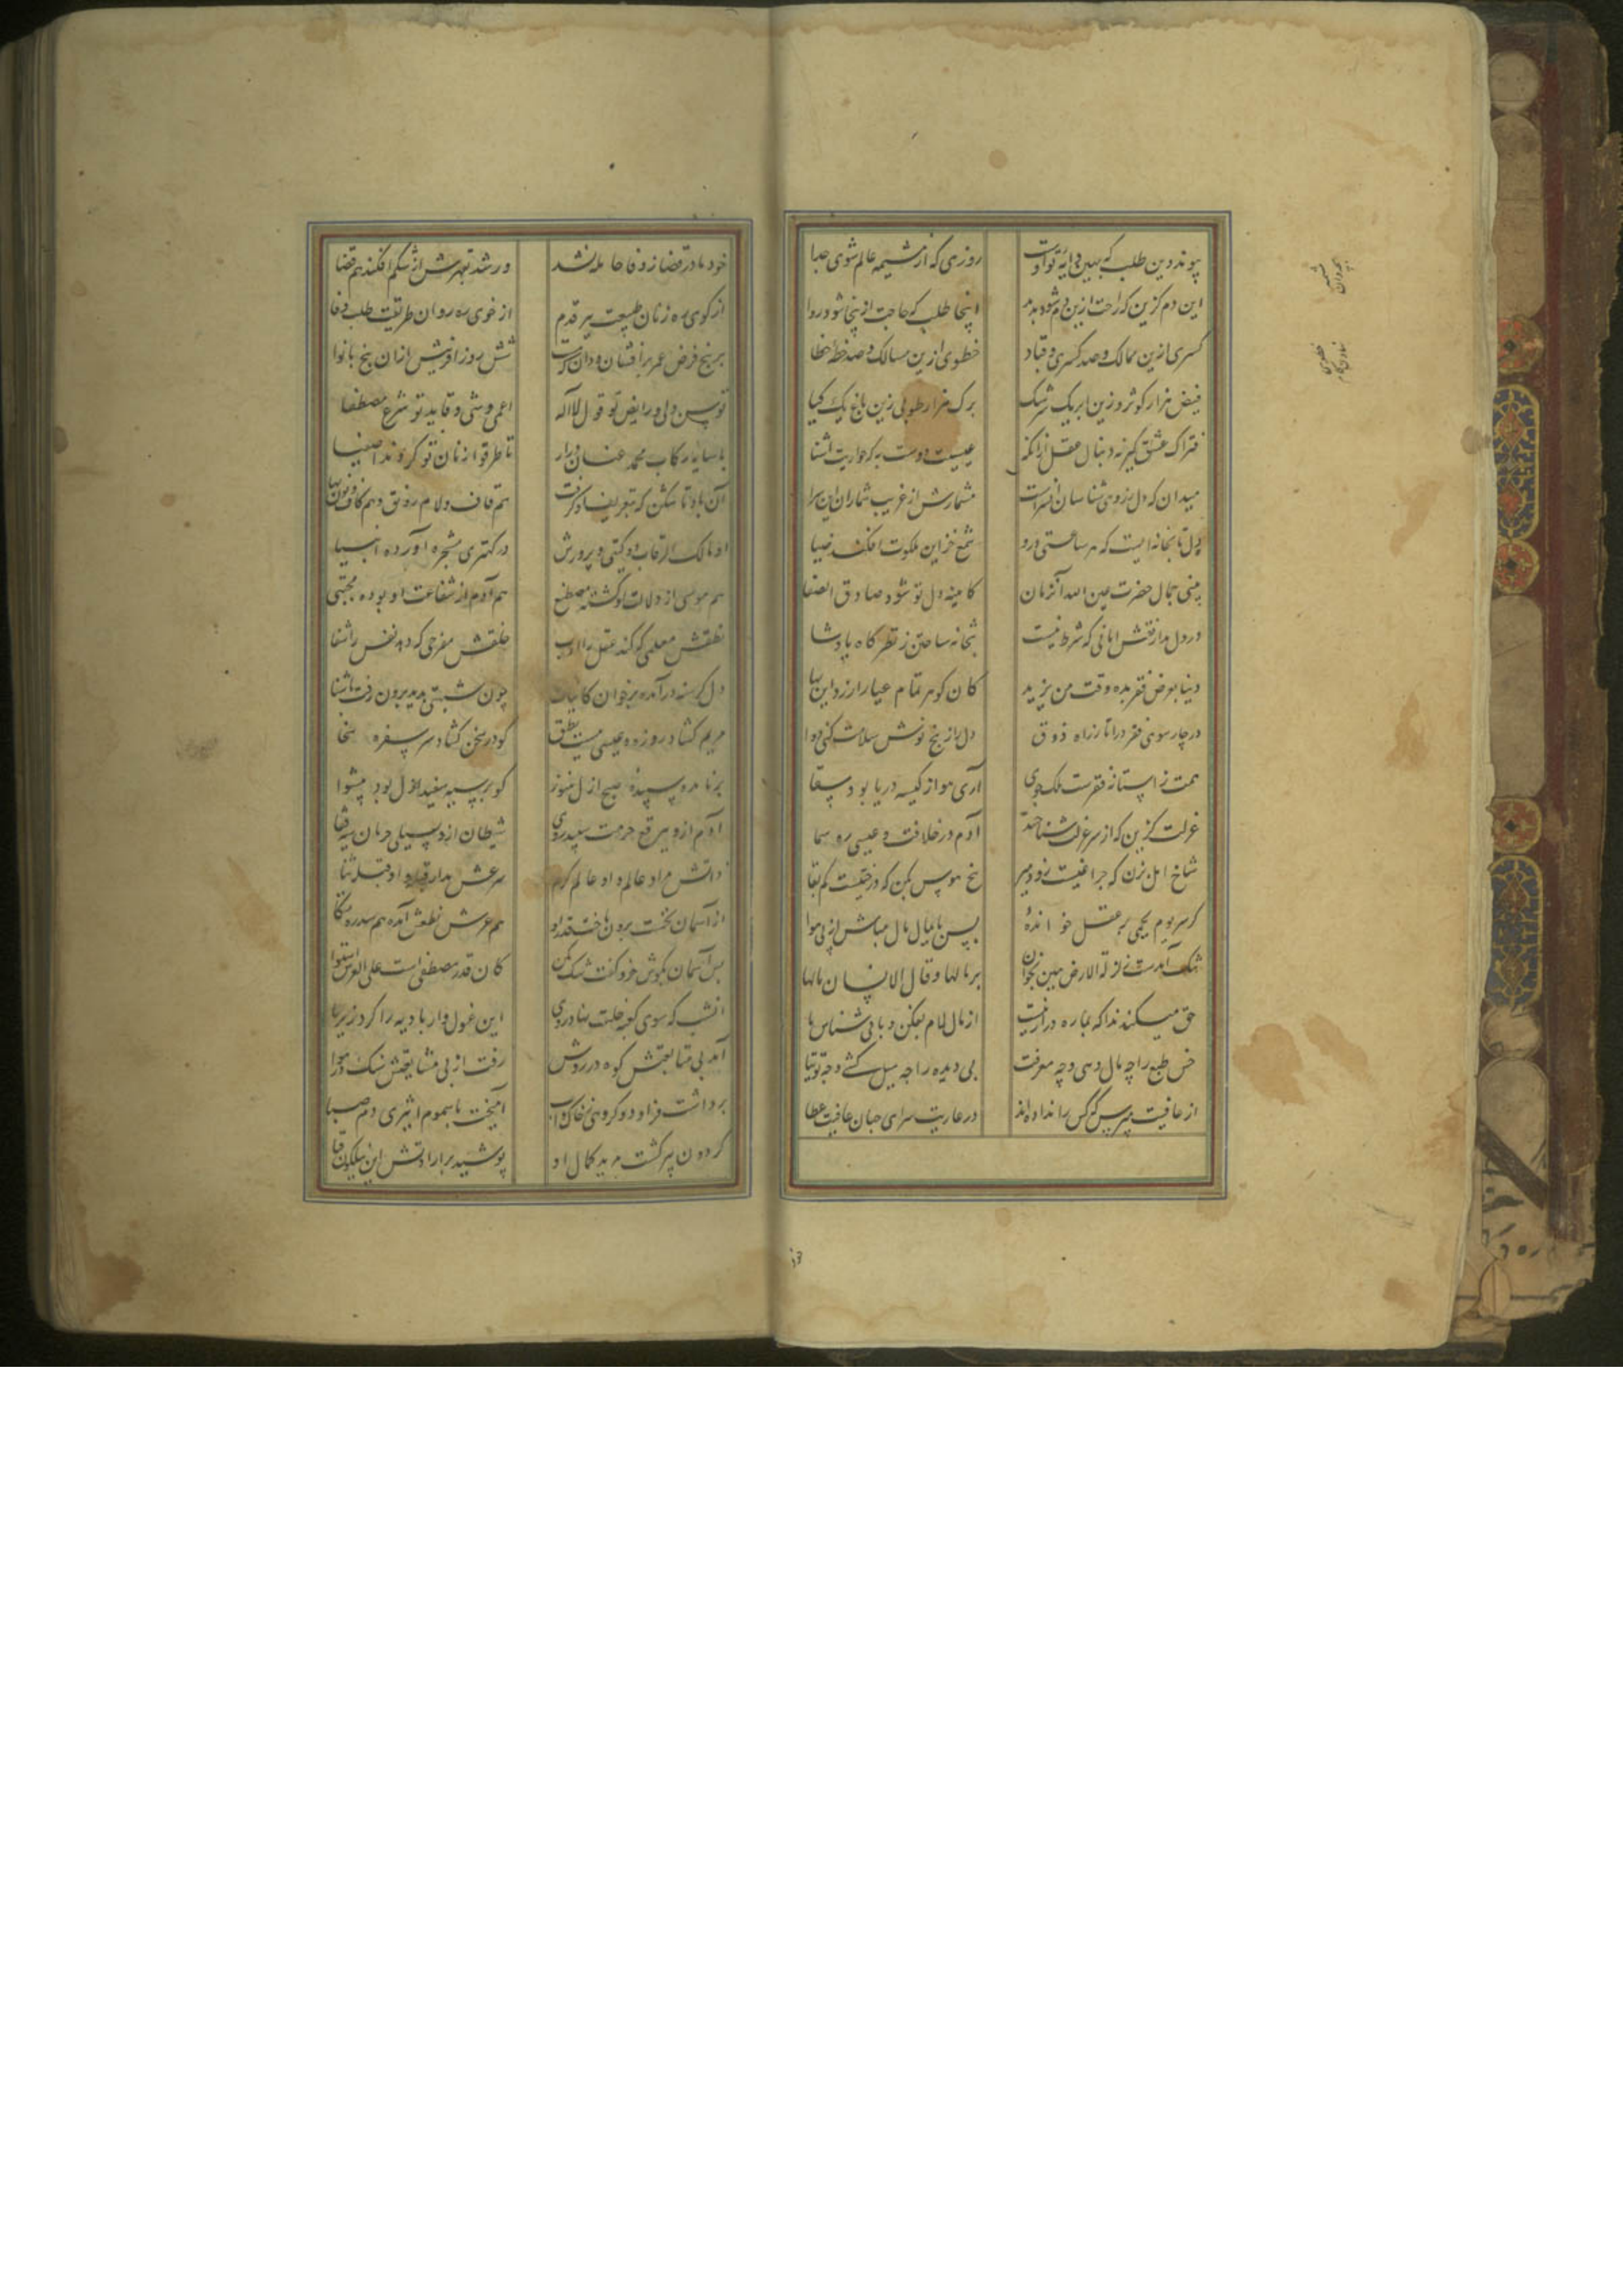 پیوند دین طلب که مهین دایه تو اوست روزی که از مشیمه عالم شوی جدا
این دم گزین که راحت ازین دم شود پدید اینجا طلب که حاجت ازینجا شود روا
کسری ازین ممالک و صد کسری و قباد خطوی ازین مسالک و صد خطه خطا
فیض هزار کوثر و زین ابر یک سرشک برک هزار طوبی زین باغ یک کیا
فتراک عشق گیر نه دنبال عقل ازانکه عیسیت دوست به که حواریت آشنا
میدان که دل ز روی شناسان آن سراست مشمارش از غریب شماران این سرا
دل تابخانه ایست که هر ساعتی درو شمع خزاین ملکوت افکند ضیا
بینی جمال حضرت عین الله آنزمان کایینه دل تو شود صادق الصفا
در دل مدار نقش امانی که شرط نیست بتخانه ساختن ز نظرگاه پادشا
دنیا بعرض فقر بده وقت من یزید کان گوهر تمام عیار ارزد این بها
در چار سوی فقر درا تا ز راه ذوق دل را ز پنج نوش سلامت کنی دوا
همت ز آستانه فقرست ملک جوی آری هوا ز کیسه دریا بود سقا
عزلت گزین که از سر عزلت شناختند آدم در خلافت و عیسی ره سما
شاخ امل بزن که چراغیست زود میر بیخ هوس بکن که درختیست کم بقا
گر سر یوم یحمی بر عقل خوانده پس پایمال مال مباش از پی هوا
شک آیدت ز زلزلة الارض هین بخوان برمالها و قال الانسان مالها
حق میکند ندا که بما ره دراز نیست از مال لام بفکن و باقی شناس ما
خس طبع را چه مال دهی و چه معرفت بی دیده را چه میل کشی و چه توتیا
از عافیت مپرس که کس را نداده اند در عاریت سرای جهان عافیت عطا
خود مادر قضا ز وفا حامله نشد ور شد بقهرش از شکم افکند هم قضا
از کوی ره زنان طبیعت ببر قدم از خوی ره روان طریقت طلب وفا
بر پنج فرض عمر برافشان و دان که هست شش روز آفرینش ازان پنج با نوا
توسن دلی و رایض تو قول لا اله اعمی وشی و قاید تو شرع مصطفا
با سایه رکاب محمد عنان درآر تا طرقوا زنان تو گردند اصفیا
آن با و تا شکن که بتعریف او گرفت هم قاف و لام رونق و هم کاف و نون بها
او مالک الرقاب دو گیتی و پرورش در کهتری مشجره آورده انبیا
هم موسی از دلالت او گشته مصطنع هم آدم از شفاعت او بوده مجتبی
نطقش معلمی که کند عقل را ادب خلقش مفرحی که دهد نفس را شفا
دل گرسنه درآمده بر خوان کاینات چون شبهتی بدید برون رفت ناشتا
مریم گشاده روزه و عیسی ببسته نطق کو در سخن گشاد سر سفره سخا
بر نامده سپیده صبح ازل هنوز کو بر سیه سفید ازل بود پیشوا
آدم ازو ببرقع حرمت سپیدروی شیطان ازو بسیلی حرمان سیه قفا
ذاتش مراد عالم و او عالم کرم شرعش مدار قبله و او قبله ثنا
از آسمان نخست برون تاخت قدر او هم عرش نطعش آمده هم سدره متکا
پس آسمان بگوش خرد گفت شک مکن کان قدر مصطفی است علی العرش استوا
آنشب که سوی کعبه خلت نهاد روی این غول وار بادیه را کرد زیر پا
آمد پی متابعتش کوه در روش رفت از پی مشایعتش سنگ در هوا
برداشت فر او دو گروهی ز خاک و آب آمیخت با سموم اثیری دم صبا
گردون پیر گشت مرید کمال او پوشید بر ارادتش این نیلگون قبا